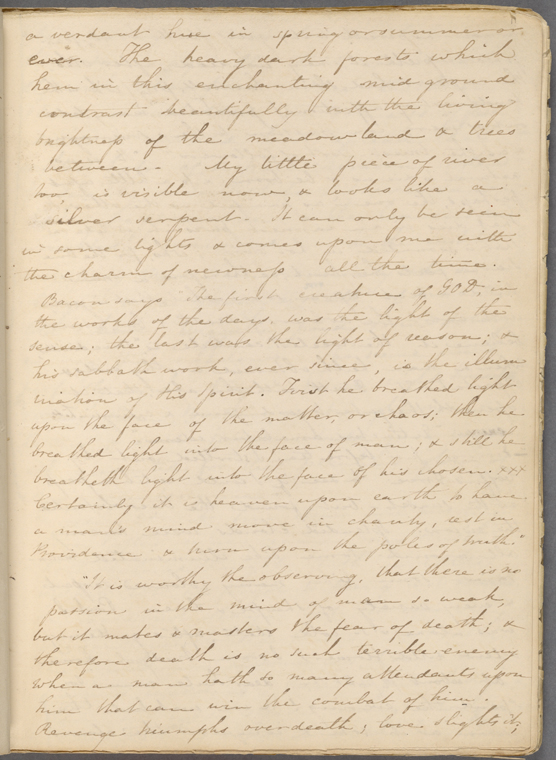 a verdant hue in spring or summer or
ever. The heavy dark forests which
hem in this enchanting mid ground
contrast beautifully with the living
brightness of the meadow land & trees
between. My little piece of river
too, is visible now, & looks like a
silver serpent. It can only be seen
in some lights & comes upon me with
the charm of newness all the time.
Bacon says The first creature of GOD, in
the works of the days, was the light of the
sense; the last was the light of reason; &
his sabbath work, ever since, is the illum
ination of His Spirit. First he breathed light
upon the face of the matter, or chaos; then he
breathed light into the face of man; & still he
breatheth light into the face of his chosen. xxx
Certainly it is heaven upon earth to have
a man's mind move in charity, rest in
Providence & turn upon the poles of truth."
"It is worthy the observing, that there is no
passion in the mind of man so weak,
but it mates & masters the fear of death; &
therefore death is no such terrible enemy
when a man hath so many attendants upon
him that can win the combat of him.
Revenge triumphs over death; love slights it;